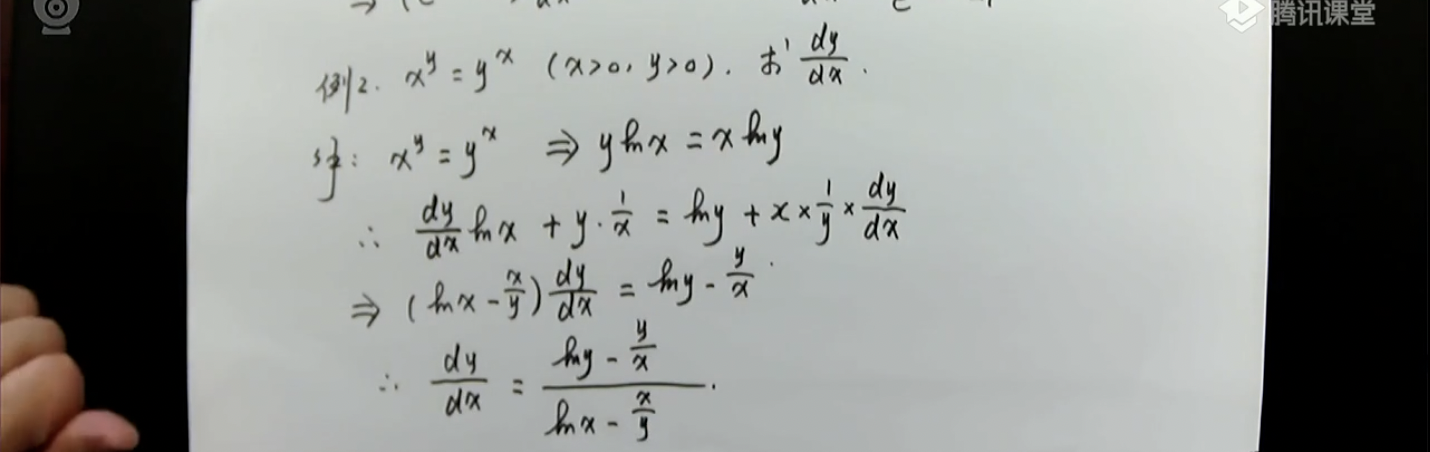 腾讯课堂
例2. x^y = y^x (x>0, y>0). 求 dy/dx.
解: x^y = y^x ⇒ y ln x = x ln y
∴ dy/dx ln x + y · 1/x = ln y + x × 1/y × dy/dx
⇒ (ln x - x/y) dy/dx = ln y - y/x.
∴ dy/dx = (ln y - y/x)/(ln x - x/y).